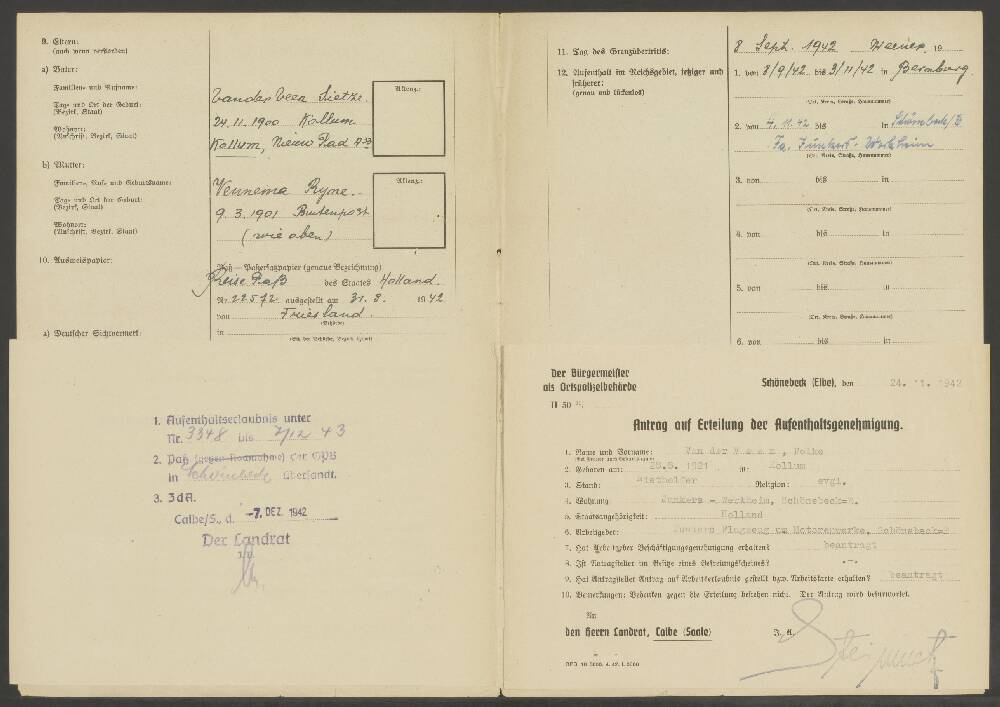 9. Eltern:
(auch wenn verstorben)
a) Vater:
Familien- und Rufname:
Vander Veen Sietze.
Tage und Ort der Geburt:
(Bezirk, Staat)
24.11.1900 Kollum
Wohnort:
(Anschrift, Bezirk, Staat)
Kollum, Nieuw Pad A39
Allenz.:
b) Mutter:
Familien-, Ruf- und Geburtsname:
Vennema Ryme.
Tage und Ort der Geburt:
(Bezirk, Staat)
9.3.1901 Buitenpost
Wohnort:
(Anschrift, Bezirk, Staat)
(wie oben)
Allenz.:
10. Ausweispapier:
Paß — Paßersatzpapier (genaue Bezeichnung)
Reise Paß des Staates Holland.
Nr. 22572 ausgestellt am 31. 8. 1942
von Friesland.
(Behörde)
a) Deutscher Sichtvermerk:
in
(Sitz der Behörde, Bezirk, Staat)
11. Tag des Grenzübertritts:
8 Sept. 1942 19
12. Aufenthalt im Reichsgebiet, jetziger und
früherer:
(genau und lückenlos)
1. von 8/9/42 bis 3/11/42 in Bernburg.
(Ort, Kreis, Straße, Hausnummer)
2. von 4.11.42 bis in Schönebeck/E.
Fa. Junkers. Werkheim
(Ort, Kreis, Straße, Hausnummer)
3. von bis in
(Ort, Kreis, Straße, Hausnummer)
4. von bis in
(Ort, Kreis, Straße, Hausnummer)
5. von bis in
(Ort, Kreis, Straße, Hausnummer)
6. von bis in
1. Aufenthaltserlaubnis unter
Nr. 3348 bis 7/12 43
2. Paß (gegen Rücknahme) der OPB
in Schönebeck übersandt.
3. ZdA.
Calbe/S., d. -7. DEZ. 1942
Der Landrat
I.V.
Der Bürgermeister
als Ortspolizeibehörde
II 50
Schönebeck (Elbe), den 24. 11. 1942
Antrag auf Erteilung der Aufenthaltsgenehmigung.
1. Name und Vorname: Van der V e e n , Folke
(bei Frauen auch Geburtsname)
2. Geboren am: 25.5. 1921 in: Kollum
3. Stand: Niethelfer Religion: evgl.
4. Wohnung: Junkers - Werkheim, Schönebeck-E.
5. Staatsangehörigkeit: Holland
6. Arbeitgeber: Junkers Flugzeug un Motorenwerke, Schönebeck-E
7. Hat Arbeitgeber Beschäftigungsgenehmigung erhalten? beantragt
8. Ist Antragsteller im Besitze eines Befreiungsscheines? -"-
9. Hat Antragsteller Antrag auf Arbeitserlaubnis gestellt bzw. Arbeitskarte erhalten? beantragt
10. Bemerkungen: Bedenken gegen die Erteilung bestehen nicht. Der Antrag wird befürwortet.
An
den Herrn Landrat, Calbe (Saale) J. A.